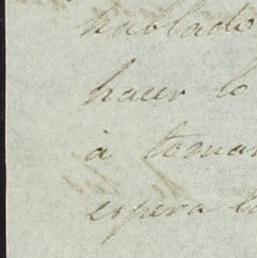 hablado
hacer lo
à tomar
espera la